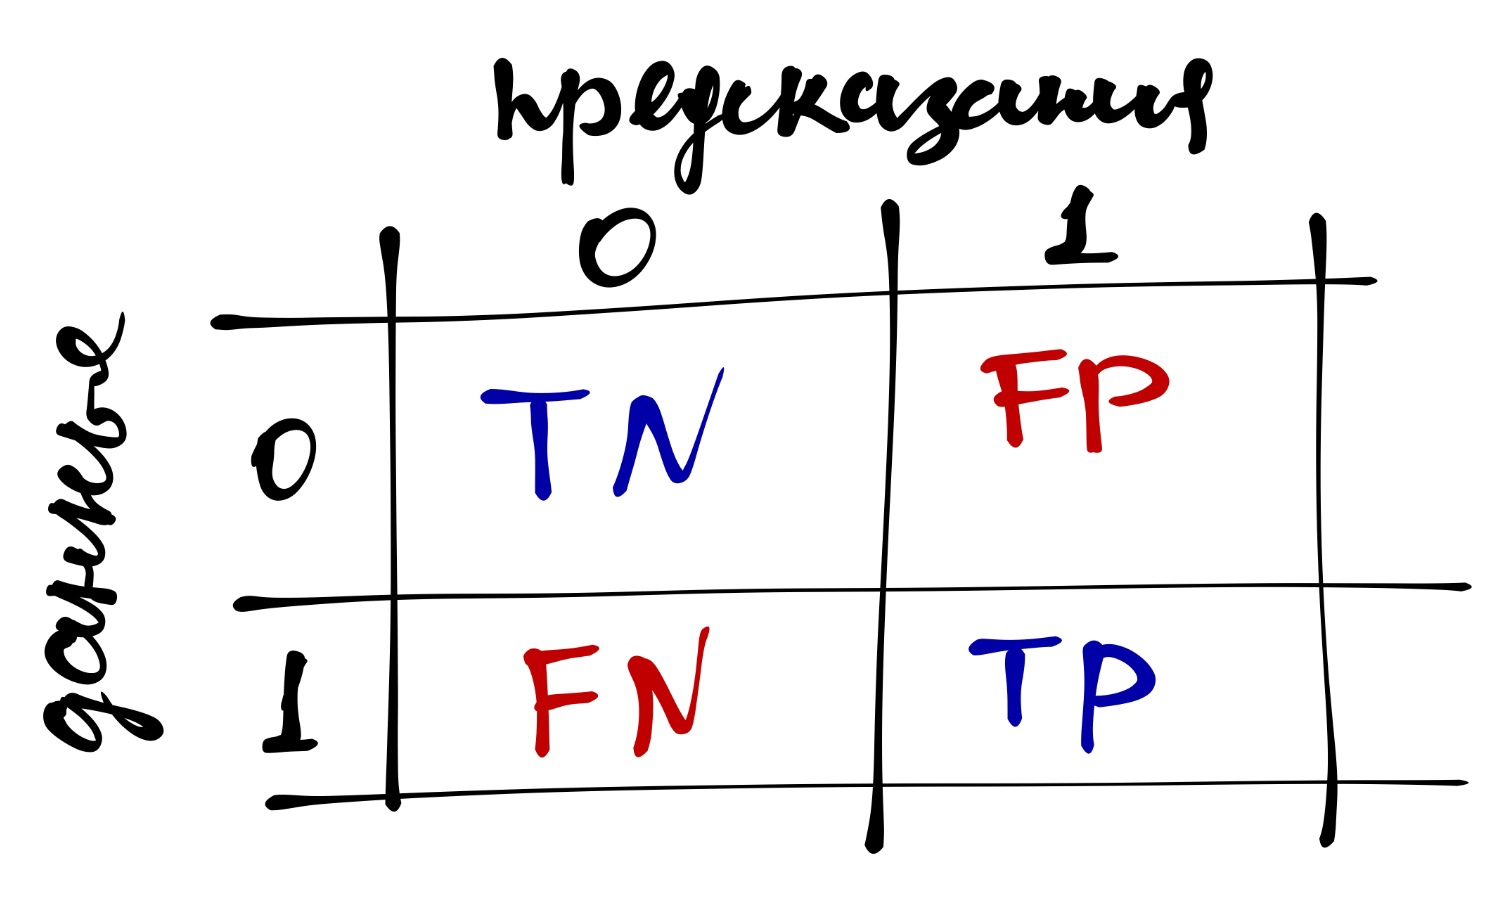 предсказания
0 1
данные
0 TN FP
1 FN TP